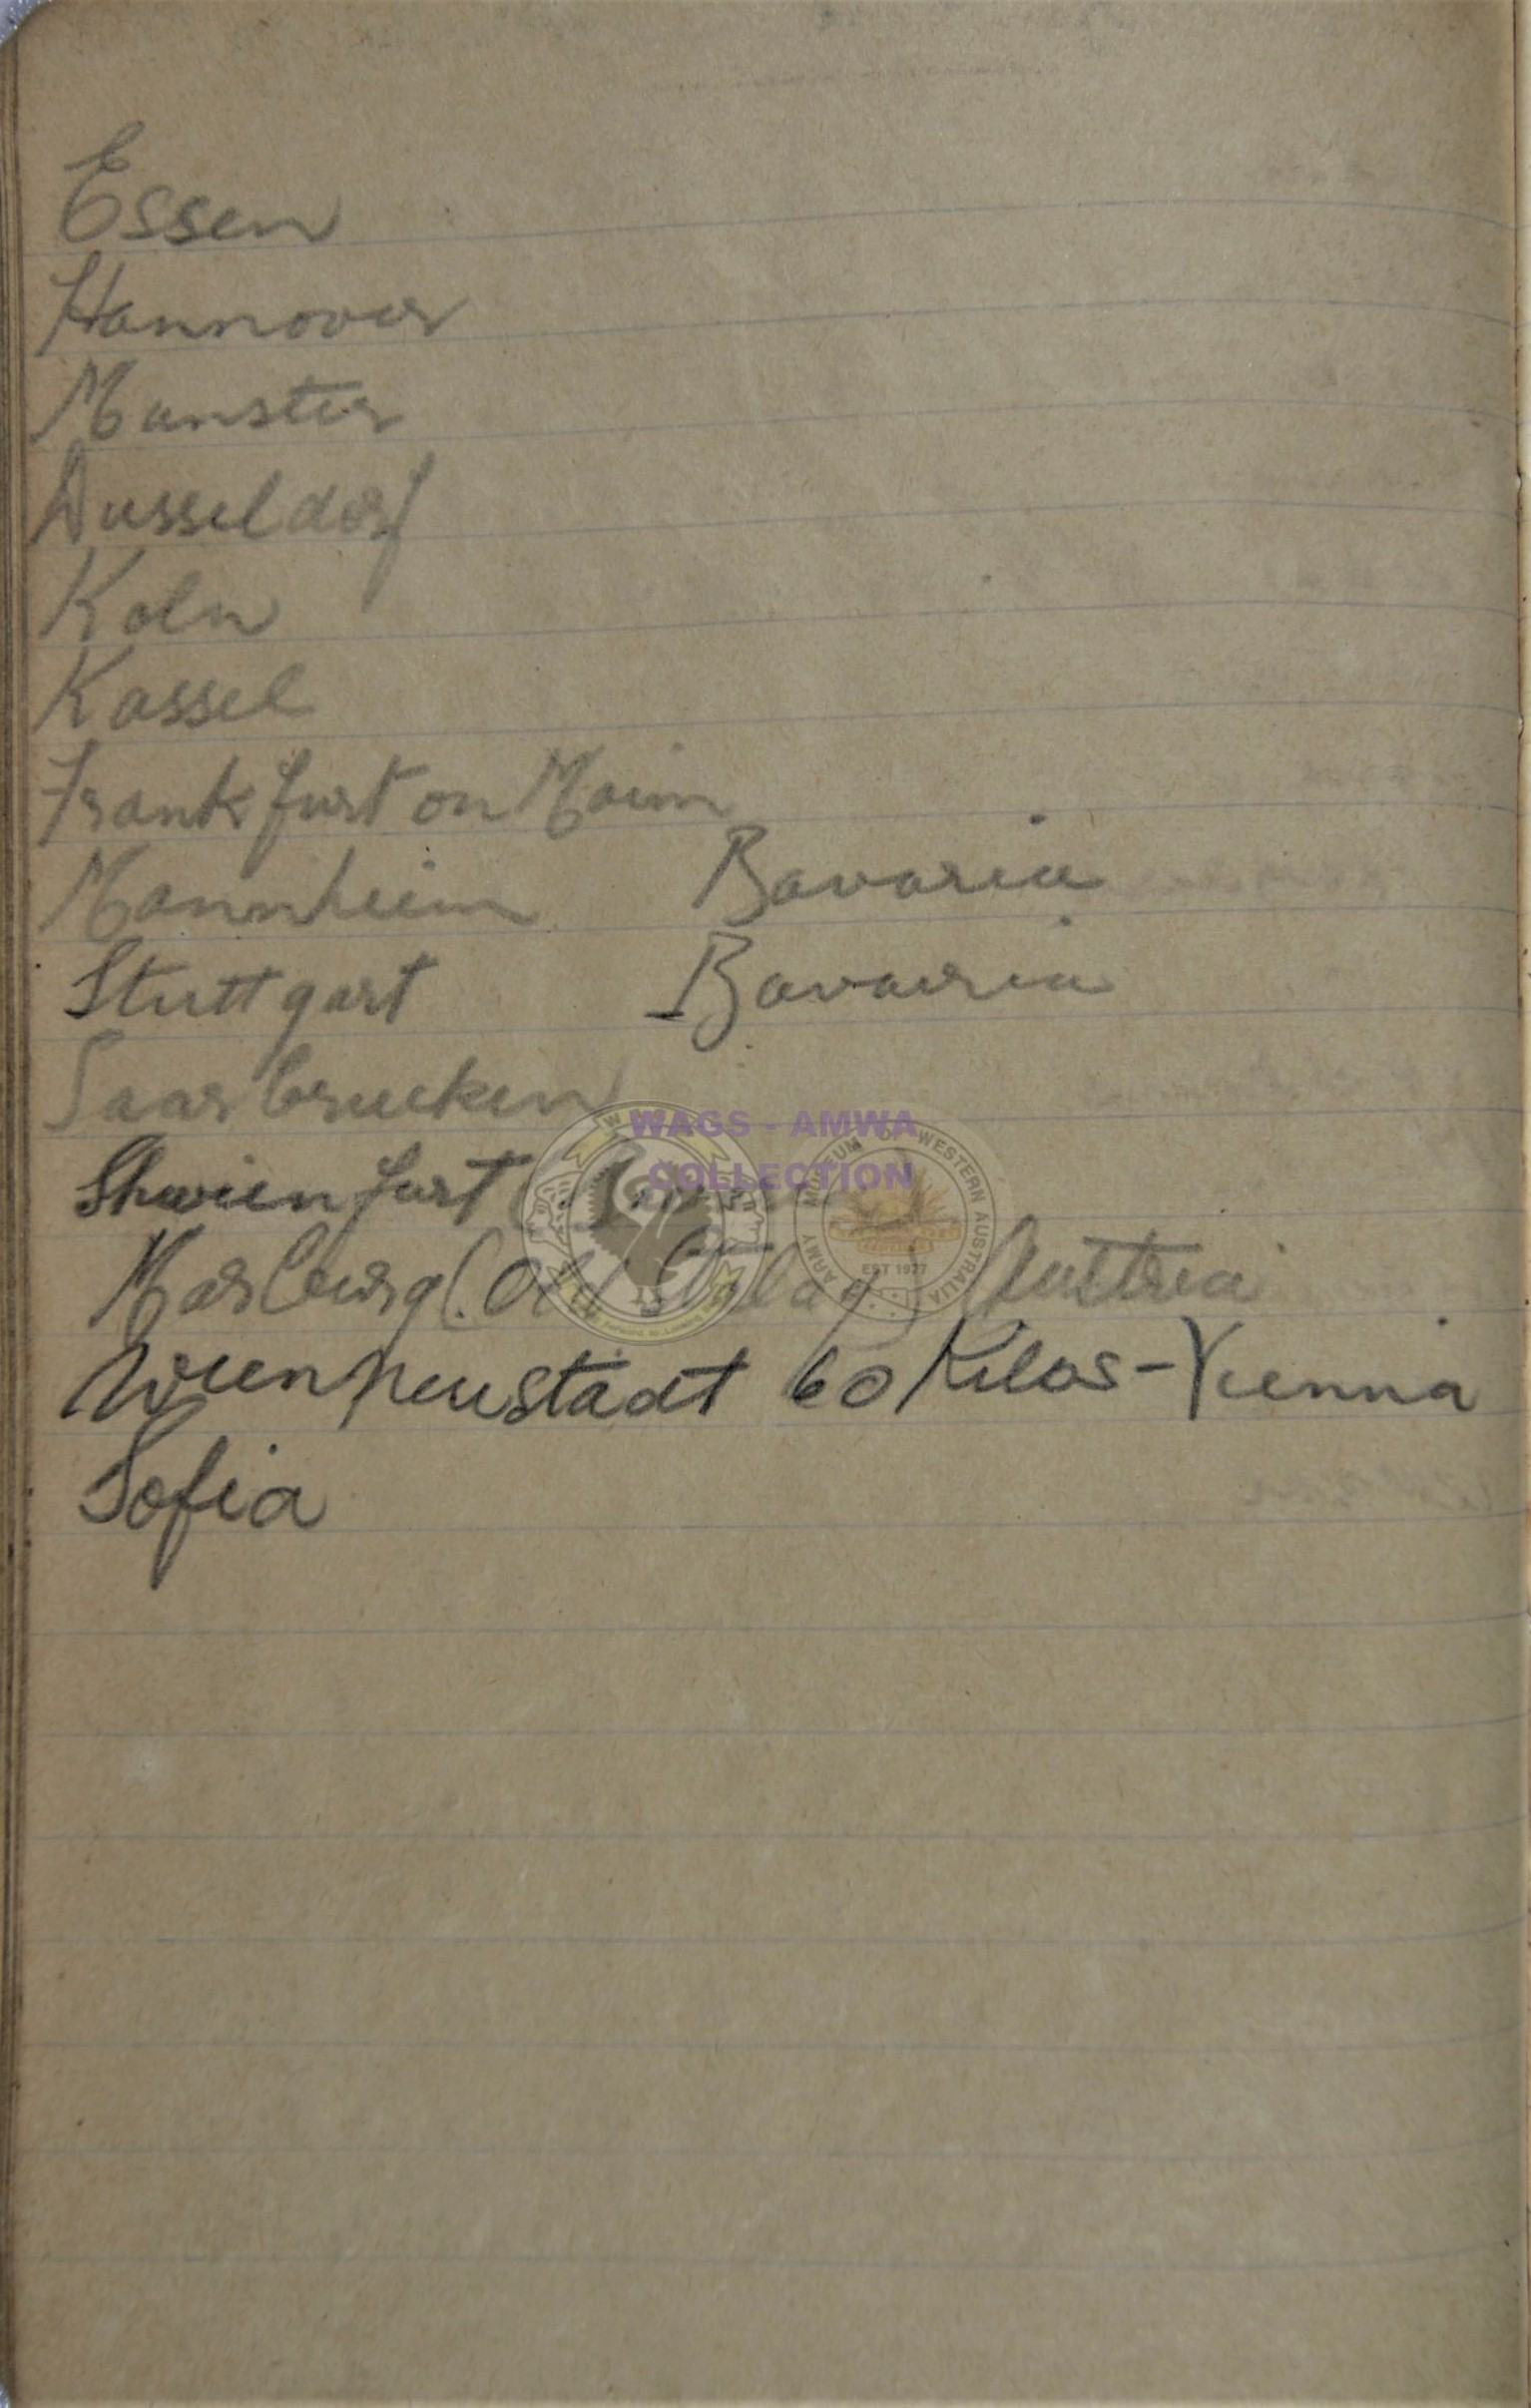 Essen
Hannover
Munster
Dusseldorf
Koln
Kassel
Frankfurt on Maim
Mannheim Bavaria
Stuttgart Bavaria
Saarbrucken
WAGS - AMWA
COLLECTION
Shwienfurt
Marburg (Old Stalag) Austria
Wienneustadt 60 Kilos - Vienna
Sofia
ARMY MUSEUM OF WESTERN AUSTRALIA
EST 1977